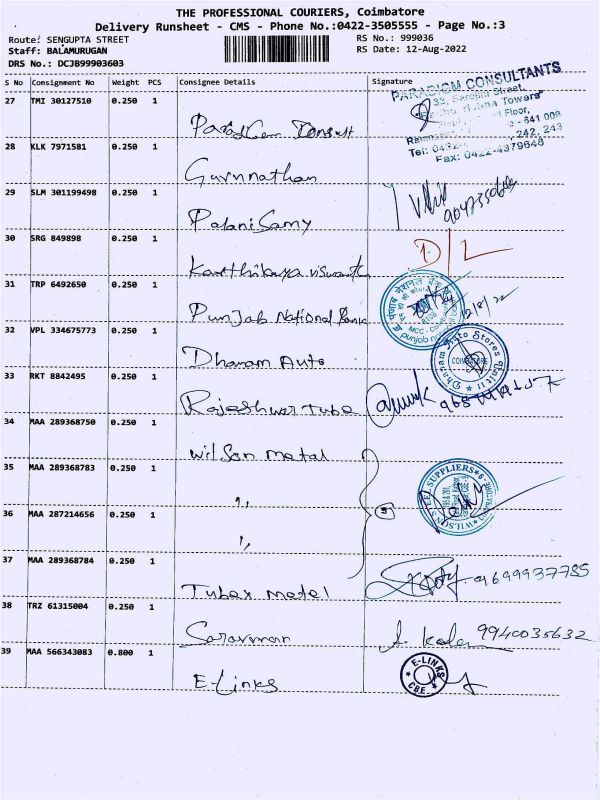 THE PROFESSIONAL COURIERS, Coimbatore
Delivery Runsheet - CMS - Phone No.:0422-3505555 - Page No.:3
Route: SENGUPTA STREET
Staff: BALAMURUGAN
DRS No.: DCJB99903603
RS No.: 999036
RS Date: 12-Aug-2022
S No Consignment No Weight PCS Consignee Details Signature
27 TMI 30127510 0.250 1
PARADIGM CONSULTANTS
33, Sarojini Street,
Towers"
Floor,
- 641 009
242, 243
Fax: 0422-4379648
28 KLK 7971581 0.250 1
Gurunathan
29 SLM 301199498 0.250 1
Palani Samy
30 SRG 849898 0.250 1
D/L
31 TRP 6492650 0.250 1
Punjab National Bank
12/8/22
32 VPL 334675773 0.250 1
Dhanam Auto
Dhanam Auto Stores
COIMBATORE
33 RKT 8842495 0.250 1
Rajeshwar Tube
34 MAA 289368750 0.250 1
Wilson Metal
35 MAA 289368783 0.250 1
"
3
36 MAA 287214656 0.250 1
"
37 MAA 289368784 0.250 1
Tubex Metel
9699937785
38 TRZ 61315004 0.250 1
Saravanan
9940035632
39 MAA 566343083 0.800 1
E-Links
E-LINKS
CBE.